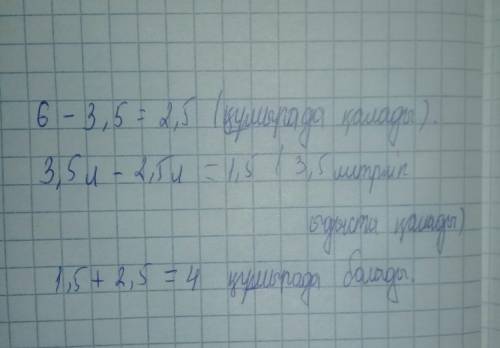 6 - 3,5 = 2,5 (құмырада қалады).
3,5л - 2,5л = 1,5 ( 3,5 литрлік
ыдыста қалады)
1,5 + 2,5 = 4 құмырада болады.